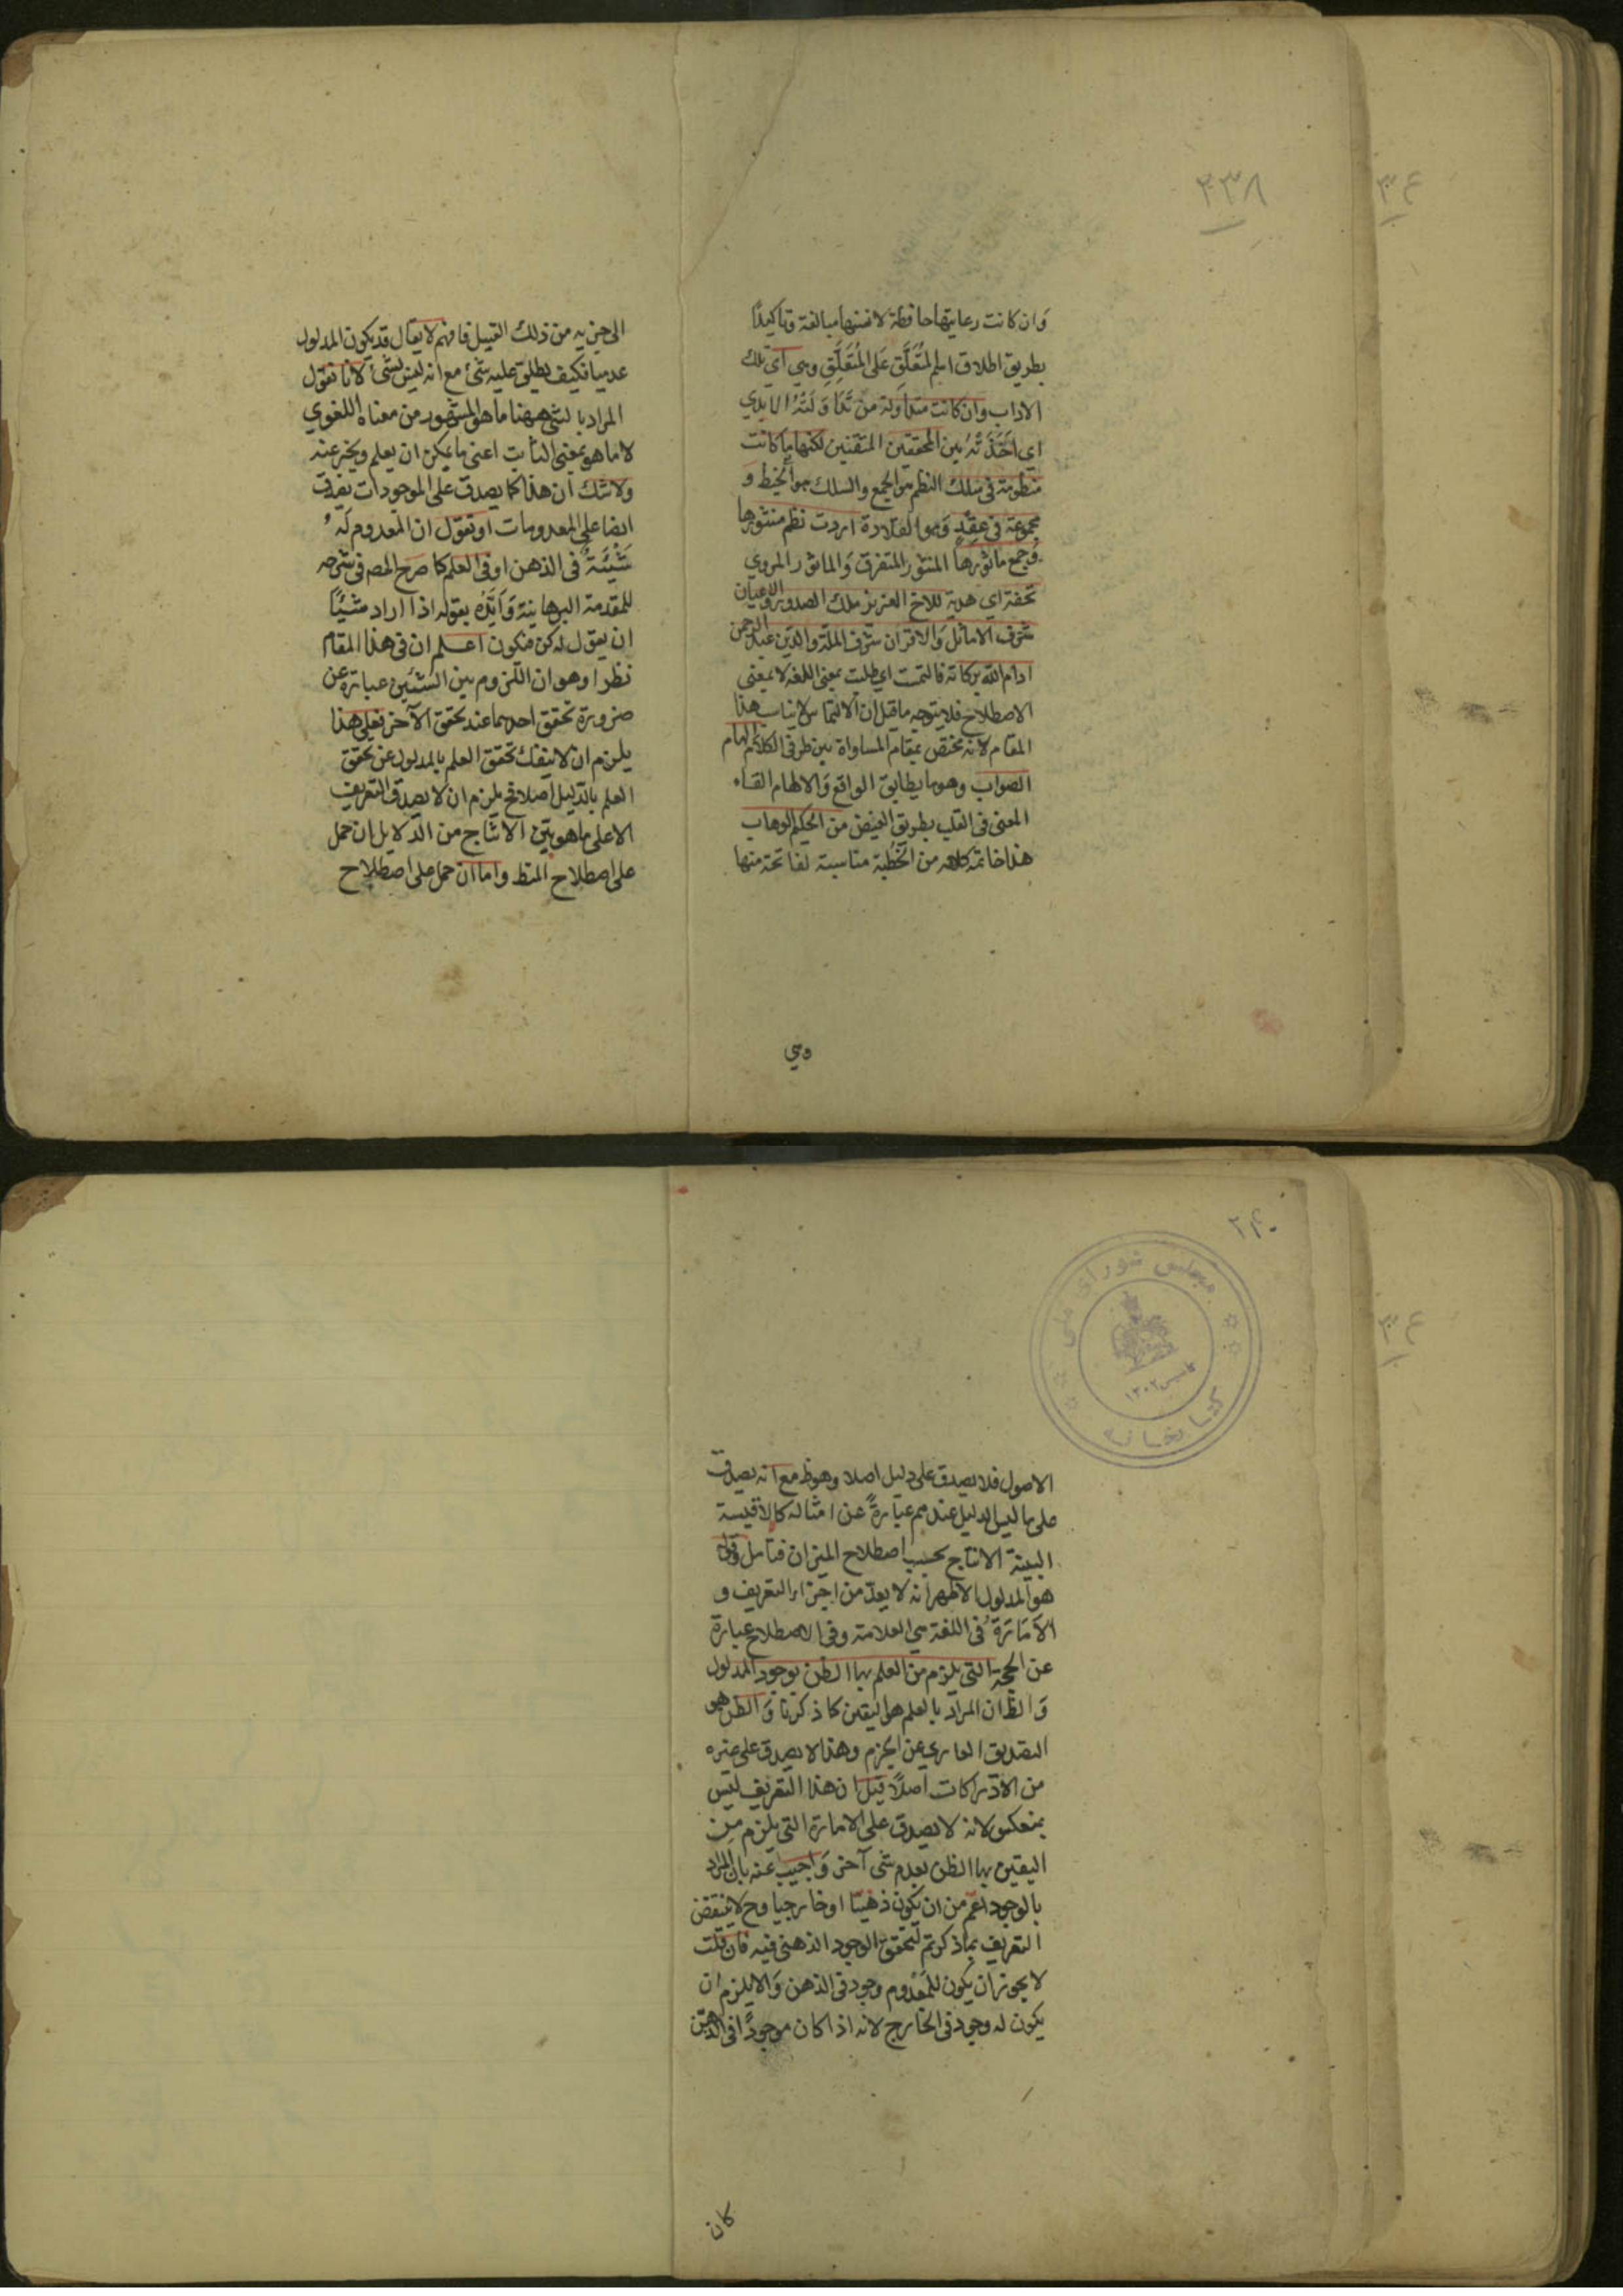 ٢٣٨
٣٤
وان كانت رعايتها حافظة لانفسها مبالغة وتاكيدًا
بطريق اطلاق اسم المُتَعَلَّقِ عَلى المُتَعَلِّقِ وهي اي تلك
الاداب وان كانت متداولة من تَدَاوَلَتْهُ الايدي
اي اَخَذَتْهُ بين المحققين المتقنين لكنها ما كانت
منظومة في سلك النظم هو الجمع والسلك هو الخيط و
مجموعة في عِقْدٍ وَهو القلادة اردت نظم منثورها
وَجمع ماثورها المنثور المتفرق وَالماثور المروي
تحفة اي هدية للاخ العزيز ملك الصدور والاعيان
شرف الاماثل وَالاقران شرف الملّة والدّين عبد الرحمن
ادام الله بركاته فالتمست اي طلبت بمعنى اللغة لا بمعنى
الاصطلاح فلا يتوجه ما قيل ان الالتماس لا يناسب هذا
المقام لانه مختص بمقام المساواة بين طرفي الكلام الهام
الصواب وهو ما يطابق الواقع وَالالهام القاء
المعنى في القلب بطريق الفيض من الحكيم الوهاب
هذا خاتمة كلامه من الخُطبة مناسبة لفاتحة منها
وهي
الى جزيه من ذلك القبيل فافهم لا يقال قد يكون المدلول
عدميا فكيف يطلق عليه شئ مع انه ليس بشئ لانا نقول
المراد بالشئ ههنا ما هو المشهور من معناه اللغوي
لا ما هو بمعنى الثابت اعنى ما يمكن ان يعلم ويخبر عنه
ولا شك ان هذا كما يصدق على الموجودات يصدق
ايضا على المعدومات او نقول ان المعدوم لَهُ
شَيْئَةٌ في الذهن او في العلم كما صرح المص في شرحه
للمقدمة البرهانية وَاَيَّدَه بقوله اذا اراد شيئًا
ان يقول له كن فيكون اعلم ان في هذا المقام
نظرا وهو ان اللزوم بين الشيئين عبارة عن
ضرورة تحقق احدهما عند تحقق الآخر فعلى هذا
يلزم ان لا ينفك تحقق العلم بالمدلول عن تحقق
العلم بالدّليل اصلا فح يلزم ان لا يصدق التعريف
الا على ما هو بيّن الانتاج من الدّلايل ان حمل
على اصطلاح المنط واما ان حمل على اصطلاح
٢۴٠
مجلس شورای ملی
تاسیس ١٣٠٢
کتابخانه
٣٤
الاصول فلا يصدق على دليل اصلا وهو ظ مع انه يصدق
على ما ليس الدليل عندهم عبارةً عن امثاله كالاقيسة
البينة الانتاج بحسب اصطلاح الميزان فتامل وقوله
هو المدلول الاظهر انه لا يعدّ من اجزاء التعريف و
الاَمَارَةُ في اللغة هي العلامة وفي الاصطلاح عبارة
عن الحجة التي يلزم من العلم بها الظن بوجود المدلول
وَالظ ان المراد بالعلم هو اليقين كما ذكرنا وَالظن هو
التصديق العاري عن الجزم وهذا لا يصدق على غيره
من الادراكات اصلًا قيل ان هذا التعريف ليس
بمنعكس لانه لا يصدق على الامارة التي يلزم من
اليقين بها الظن بعدم شئ آخر وَاجيب عنه بان المراد
بالوجود اعمّ من ان يكون ذهنيّا او خارجيا وح لا ينتقض
التعريف بما ذكرتم لتحقق الوجود الذهني فيه فان قلت
لا يجوز ان يكون للمَعْدوم وجود في الذهن وَالا يلزم ان
يكون له وجود في الخارج لانه اذا كان موجودًا في الذهن
كان